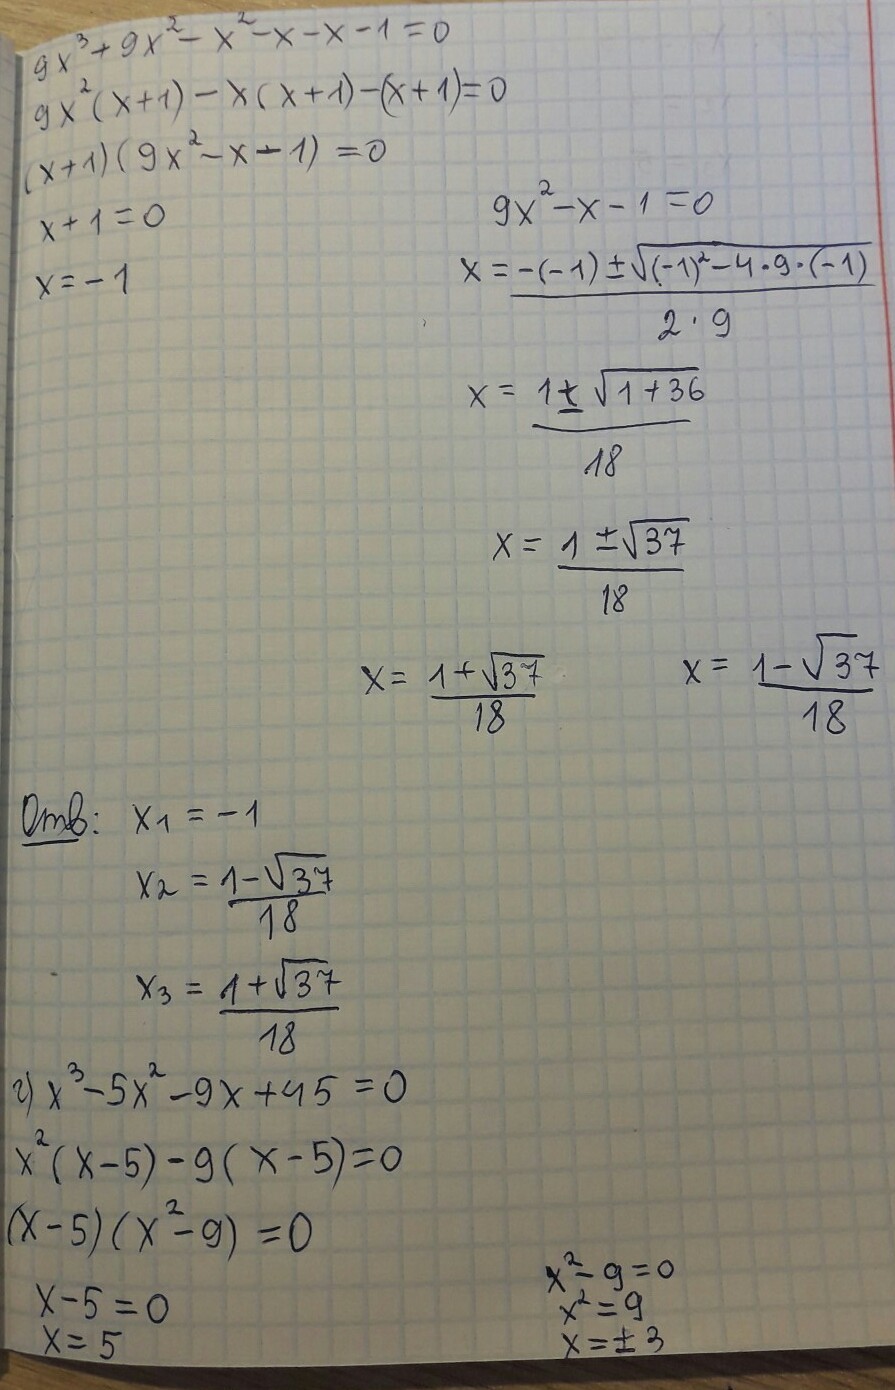 9x³+9x²-x²-x-x-1=0
9x²(x+1)-x(x+1)-(x+1)=0
(x+1)(9x²-x-1)=0
x+1=0
x=-1
9x²-x-1=0
x=-(-1)±√(-1)²-4·9·(-1)
2·9
x= 1±√1+36
18
x= 1±√37
18
x= 1+√37
18
x= 1-√37
18
Отв: x1=-1
x2= 1-√37
18
x3= 1+√37
18
г) x³-5x²-9x+45=0
x²(x-5)-9(x-5)=0
(x-5)(x²-9)=0
x-5=0
x=5
x²-9=0
x²=9
x=±3